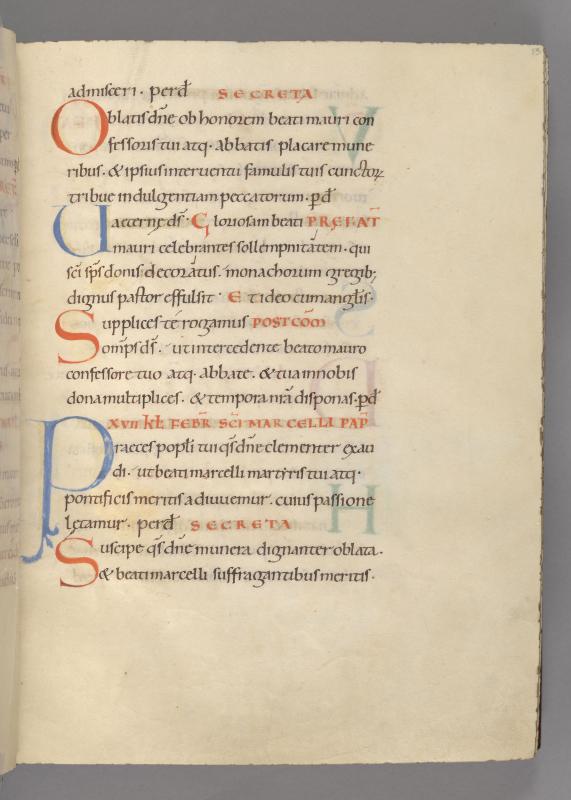 admisceri. perd̄ SECRETA
Oblatis dn̄e ob honorem beati mauri con
fessoris tui atq. abbatis placare mune
ribus. & ipsius interventu famulis tuis cunctorꝝ
tribue indulgentiam peccatorum. p̄d̄
UA aeterne ds̄. Gloriosam beati PREFAT̄
mauri celebrantes sollempnitatem. qui
sc̄i sp̄s donis decoratus. monachorum gregib;
dignus pastor effulsit. Et ideo cum angl̄is.
Supplices te rogamus POSTCOM̄
om̄ps ds̄. ut intercedente beato mauro
confessore tuo atq. abbate. & tua in nobis
dona multiplices. & tempora nr̄a disponas. p̄d̄
XVII kł FEBR̄ SC̄I MARCELLI PAP̄
Praeces popl̄i tui q̄s dn̄e clementer exau
di. ut beati marcelli martyris tui atq.
pontificis meritis adiuvemur. cuius passione
lętamur. perd̄ SECRETA
Suscipe q̄s dn̄e munera dignanter oblata.
& beati marcelli suffragantibus meritis.